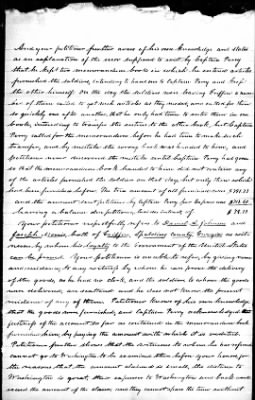 And your petitioner further avers of his own knowledge and states
as an explanation of the error supposed to exist by Captain Perry
that he kept two memorandum books in which he entered articles
furnished the soldiers, intending to hand one to Captain Perry and keep
the other himself. On the day the soldiers were leaving Griffin a num-
ber of them called to get such articles as they needed, and called for them
so quickly one after another, that he only had time to enter them in one
book, intending to transfer the entries to the other book, but Captain
Perry called for the memorandum before he had time to make such
transfer, and by mistake the wrong book was handed to him, and
petitioner never discovered the mistake until Captain Perry had gone
so that the memorandum book handed to him did not contain any
of the articles furnished the soldiers on that day, but only those which
had been furnished before. The true amount of all furnished was
and the amount paid petitioner by Captain Perry was
leaving a balance due petitioner, and unpaid, of
Your petitioner respectfully refers to Daniel J. Johnson and
Joseph Morris, both of Griffin, Spalding County, Georgia as wit-
nesses by whom his loyalty to the Government of the United States
can be proved. Your petitioner is unable to refer, by giving name
and residence, to any witness by whom he can prove the delivery
of the goods, as he had no clerk, and the soldiers to whom the goods
were delivered, are scattered and he does not know the present
residence of any of them. Petitioner knows of his own knowledge
that the goods were furnished, and Captain Perry acknowledged the
justness of the account so far as contained in the memorandum book
furnished him, by paying the amount with which it is credited.
Petitioner further shows that the witnesses to whom he has referred
cannot go to Washington to be examined there before your honors, for
the reasons that the amount claimed is small, the distance to
Washington is great, their expenses to Washington and back would
exceed the amount of the claim, and they cannot spare the time without